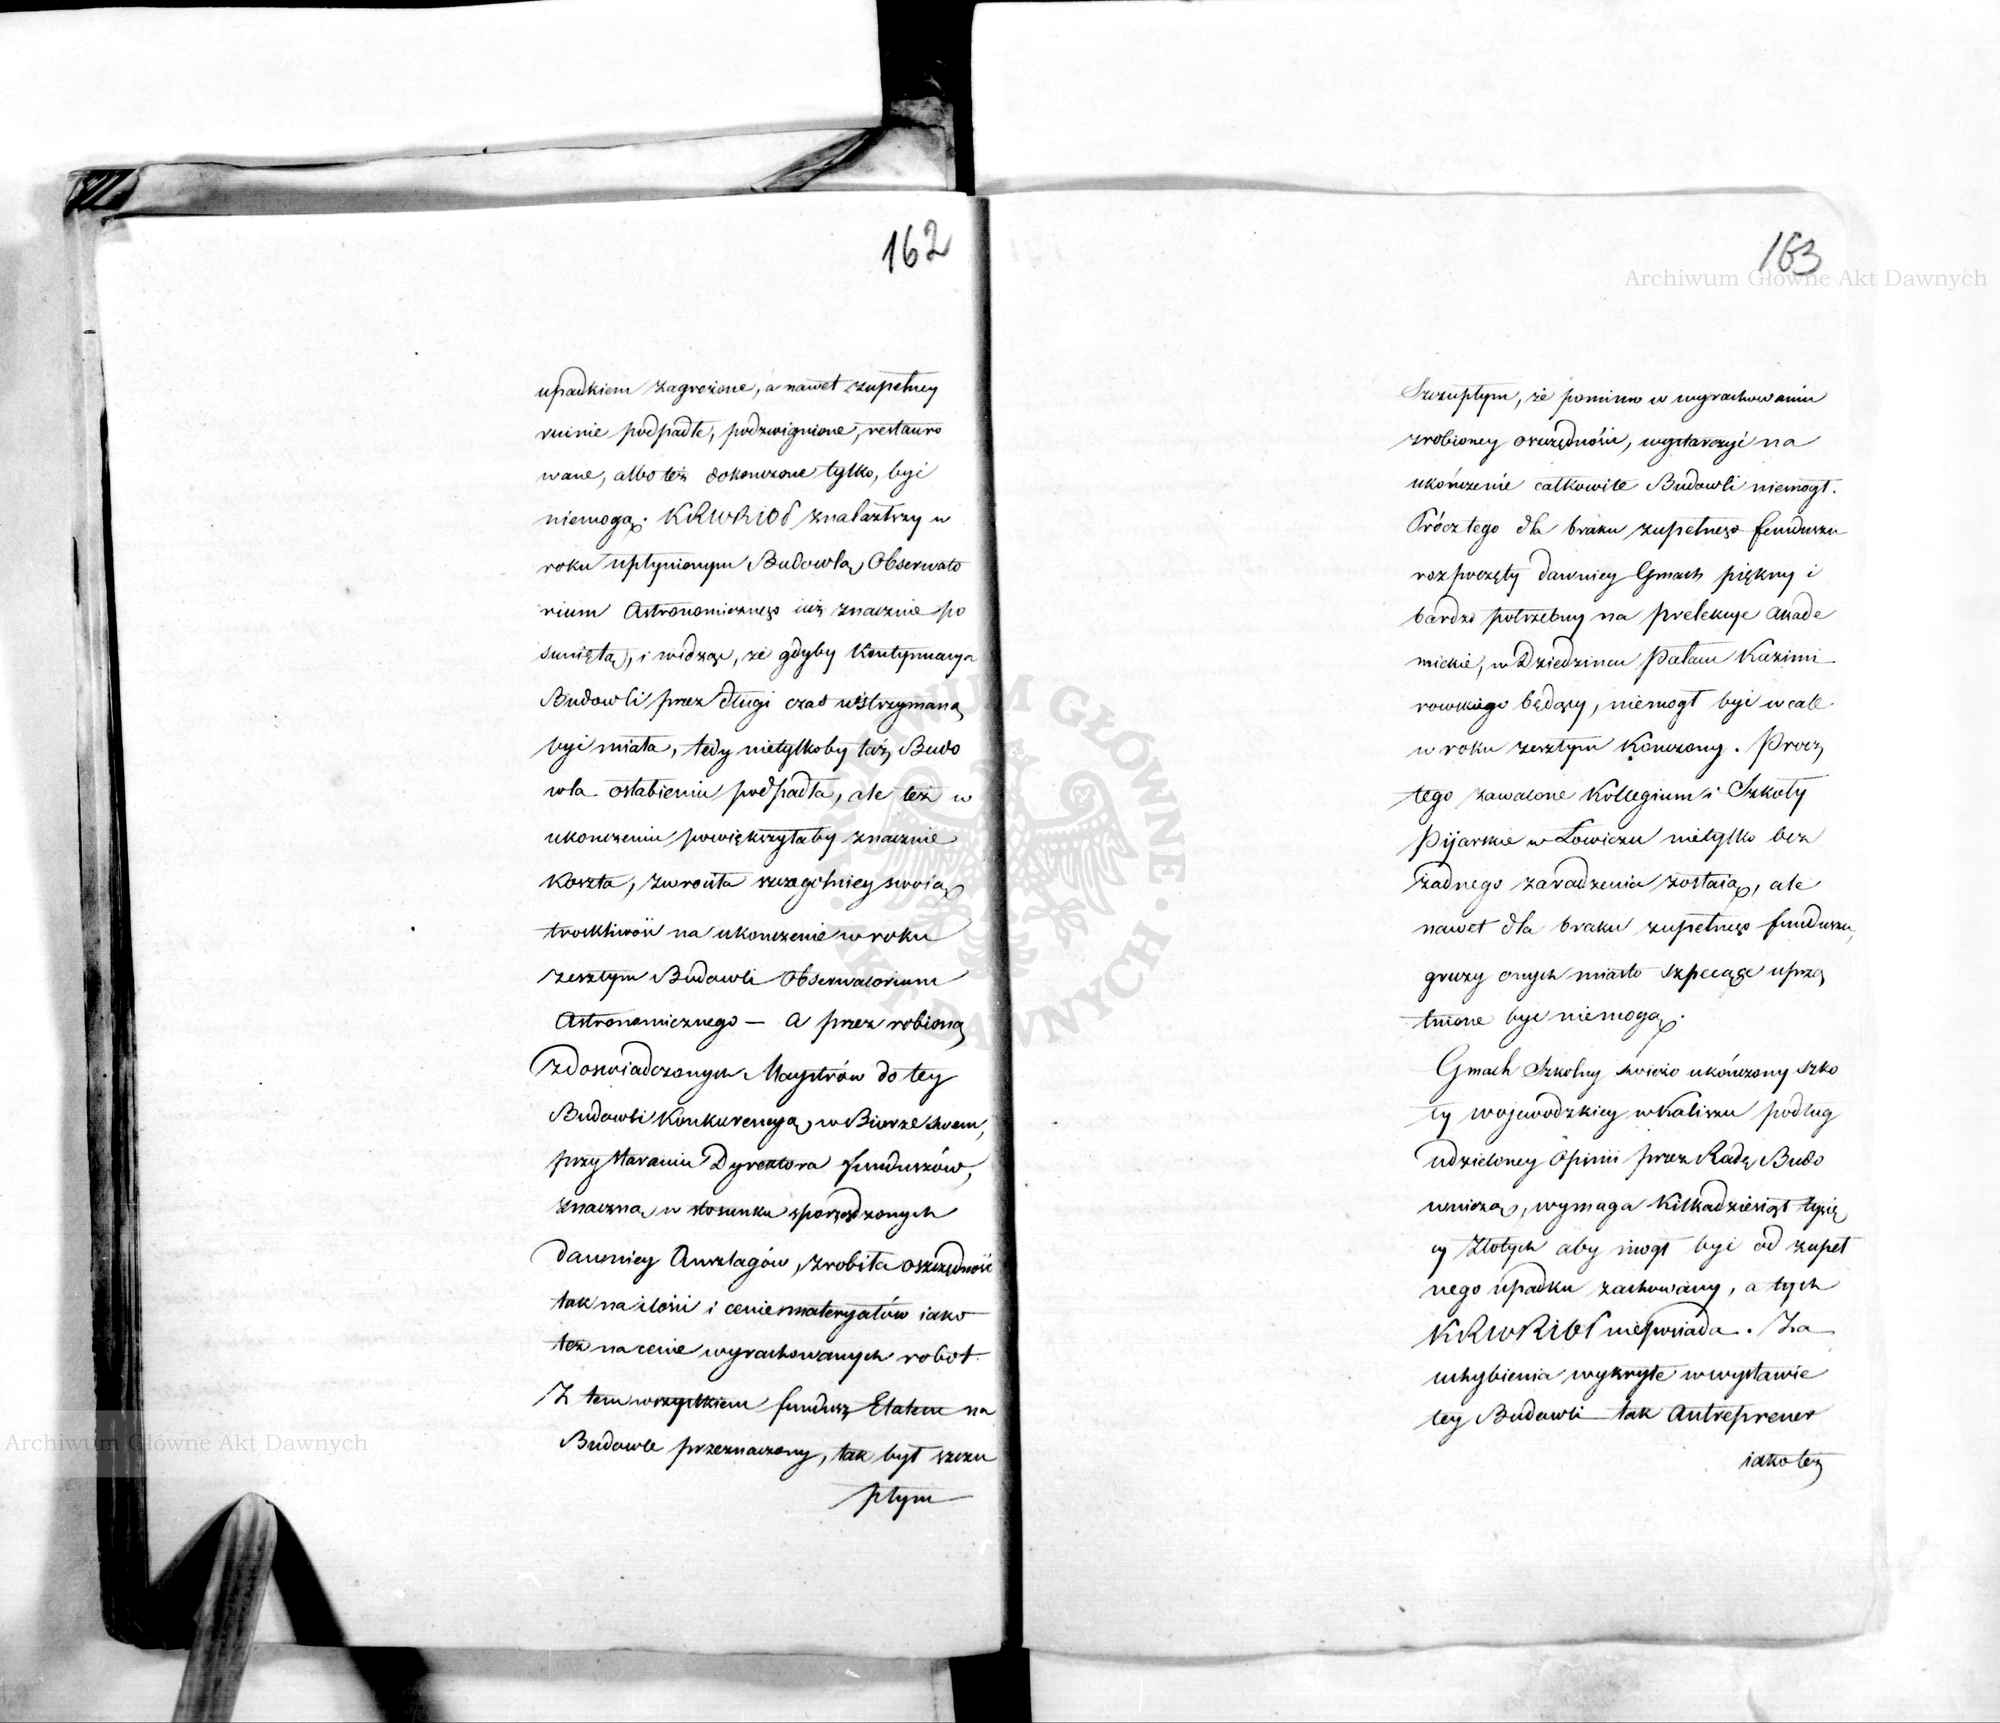 162
upadkiem zagrożone, a nawet zupełney
ruinie podpadłe, podzwignione, restauro
wane, albo też dokonczone tylko, być
niemogą. KRWRiOP znalazłszy w
roku upłynionym Budowlą Obserwato
rium Astronomicznego już znacznie po
suniętą, i widząc, że gdyby kontynuacya
Budowli przez długi czas wstrzymaną
być miała, tedy nietylkoby taż Budo
wla osłabieniu podpadła, ale też w
ukonczeniu powiększyłaby znacznie
koszta, zwróciła szczegolniey swoią
troskliwość na ukonczenie w roku
zeszłym Budowli Obserwatorium
Astronomicznego — a przez robioną
z doswiadczonych Maystrów do tey
Budowli konkurencyą, w Biurze swem,
przy staraniu Dyrektora funduszów,
znaczną w stosunku sporządzonych
dawniey Anszlagów, zrobiła oszczędność
tak na ilości i cenie materyałów iako
też na cenie wyrachowanych robot.
Z tem wszystkiem fundusz Etatem na
Budowle przeznaczony, tak był szczu
płym
163
Szczupłym, że pomimo w wyrachowaniu
zrobioney oszczędności, wystarczyć na
ukończenie całkowite Budowli niemógł.
Prócz tego dla braku zupełnego funduszu
rozpoczęty dawniey Gmach piękny i
bardzo potrzebny na prelekcye Akade
mickie, w Dziedzincu Pałacu Kazimi
rowskiego będący, niemógł być wcale
w roku zeszłym konczony. Procz
tego zawalone Kollegium i Szkoły
Pijarskie w Łowiczu nietylko bez
żadnego zaradzenia zostaią, ale
nawet dla braku zupełnego funduszu,
gruzy onych miasto szpecące uprzą
tnione być niemogą.
Gmach Szkolny świeżo ukończony szko
ły wojewodzkiey w Kaliszu podług
udzieloney Opinii przez Radę Budo
wniczą, wymaga kilkadziesiąt tysię
cy Złotych aby mogł być od zupeł
nego upadku zachowany, a tych
KRWRiOP nieposiada. Za
uchybienia wykryte w wystawie
tey Budowli tak Antreprener
iako też
Archiwum Główne Akt Dawnych
Archiwum Główne Akt Dawnych
ARCHIWUM GŁÓWNE AKT DAWNYCH